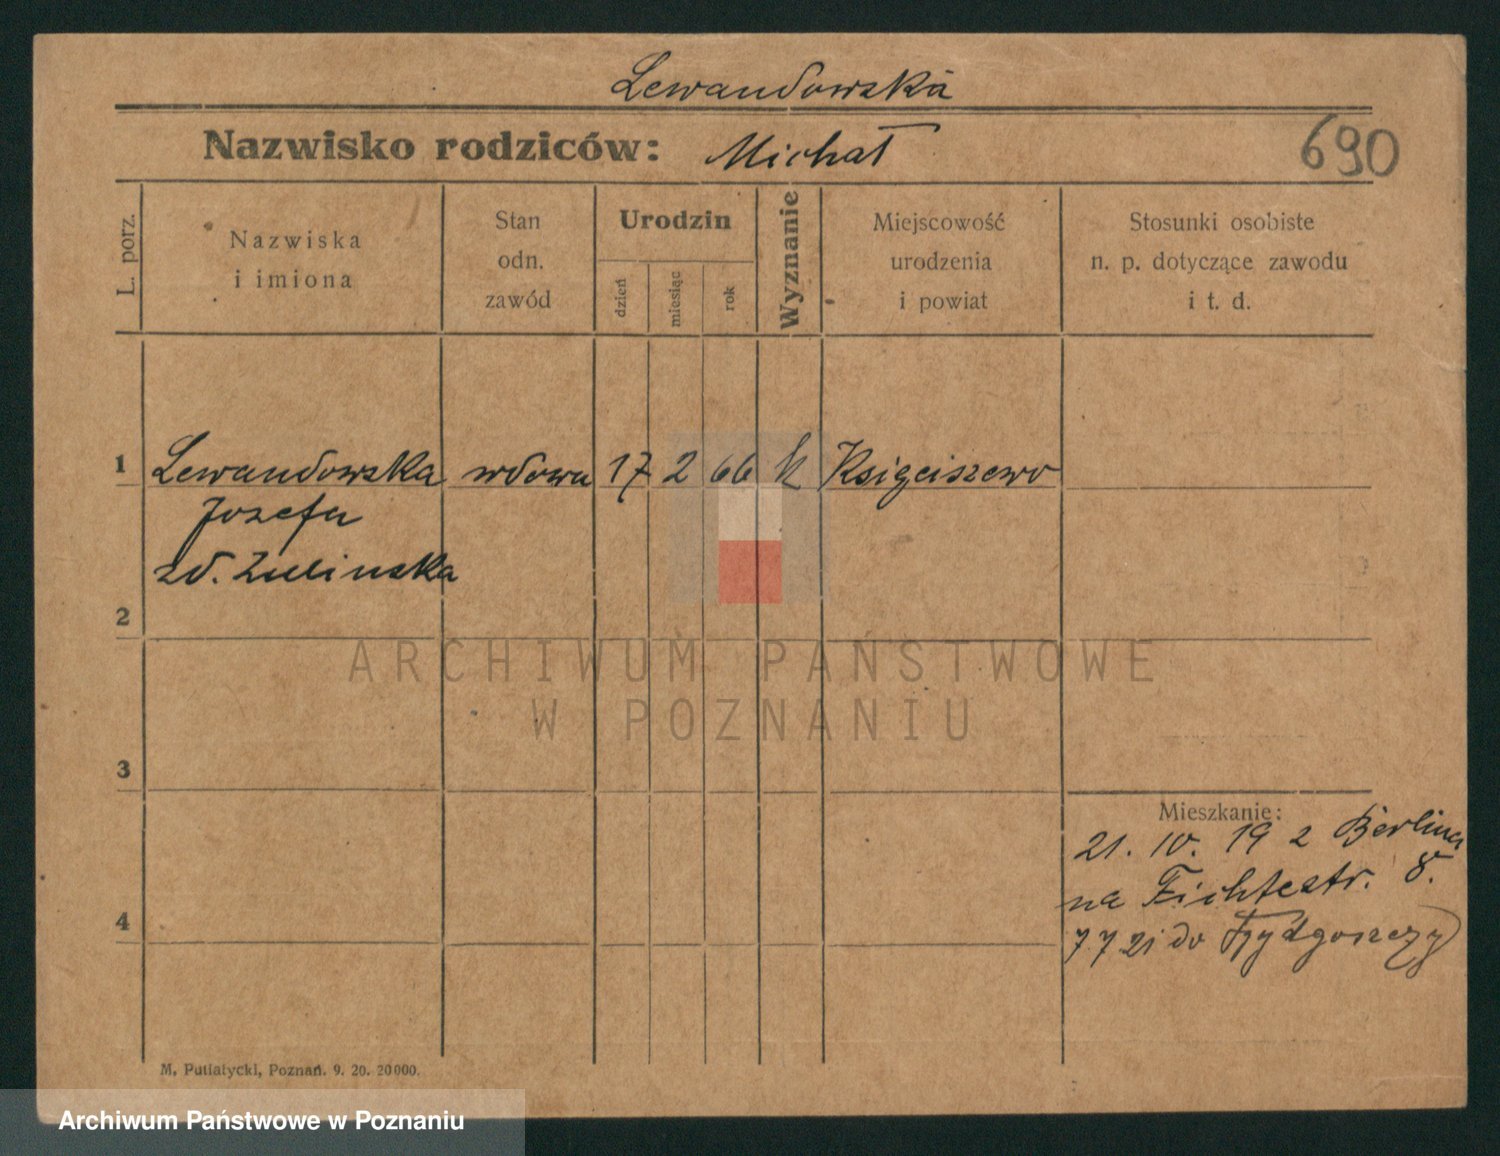 Lewandowska
Nazwisko rodziców: Michał
690
L. porz.
Nazwiska
i imiona
Stan
odn.
zawód
Urodzin
dzień
miesiąc
rok
Wyznanie
Miejscowość
urodzenia
i powiat
Stosunki osobiste
n. p. dotyczące zawodu
i t. d.
1 Lewandowska wdowa 17 2 66 k Książciszewo
Jozefa
zd. Zielinska
2
3
4
Mieszkanie:
21. 10. 19 z Berlina
na Fichtestr. 8.
7.7 21 do Bydgoszczy
ARCHIWUM PAŃSTWOWE
W POZNANIU
M. Putiatycki, Poznań. 9. 20. 20000.
Archiwum Państwowe w Poznaniu